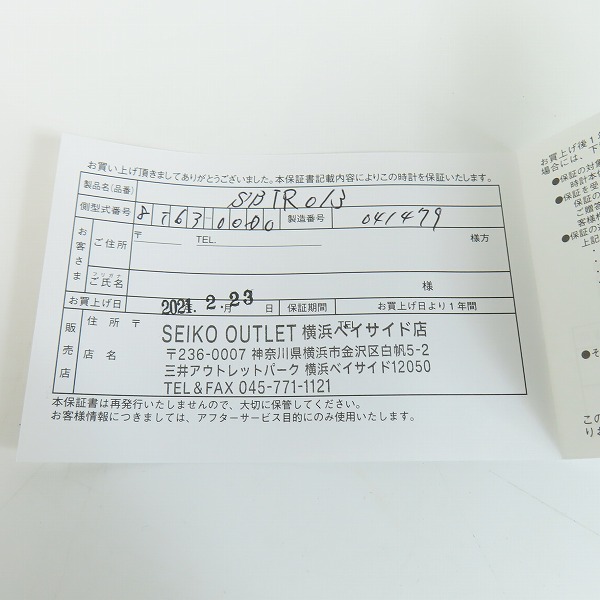 お買い上げ頂きましてありがとうございました。本保証書記載内容によりこの時計を保証いたします。
製品名(品番) SBTR013
側型式番号 8T63-00D0 製造番号 041479
お客さま
ご住所 〒 TEL. 様方
フリガナ
ご氏名 様
お買上げ日 2021年 2.月 23 日 保証期間 お買上げ日より1年間
販売店
住所 〒 TEL
店名
SEIKO OUTLET 横浜ベイサイド店
〒236-0007 神奈川県横浜市金沢区白帆5-2
三井アウトレットパーク 横浜ベイサイド12050
TEL&FAX 045-771-1121
本保証書は再発行いたしませんので、大切に保管してください。
お客様情報につきましては、アフターサービス目的にのみ使用いたします。
お買上げ後1年
場合には、下
●保証の対象
時計本体
●保証を受
保証の
ご贈答
客様
●保証の
上記
●そ
この
りお